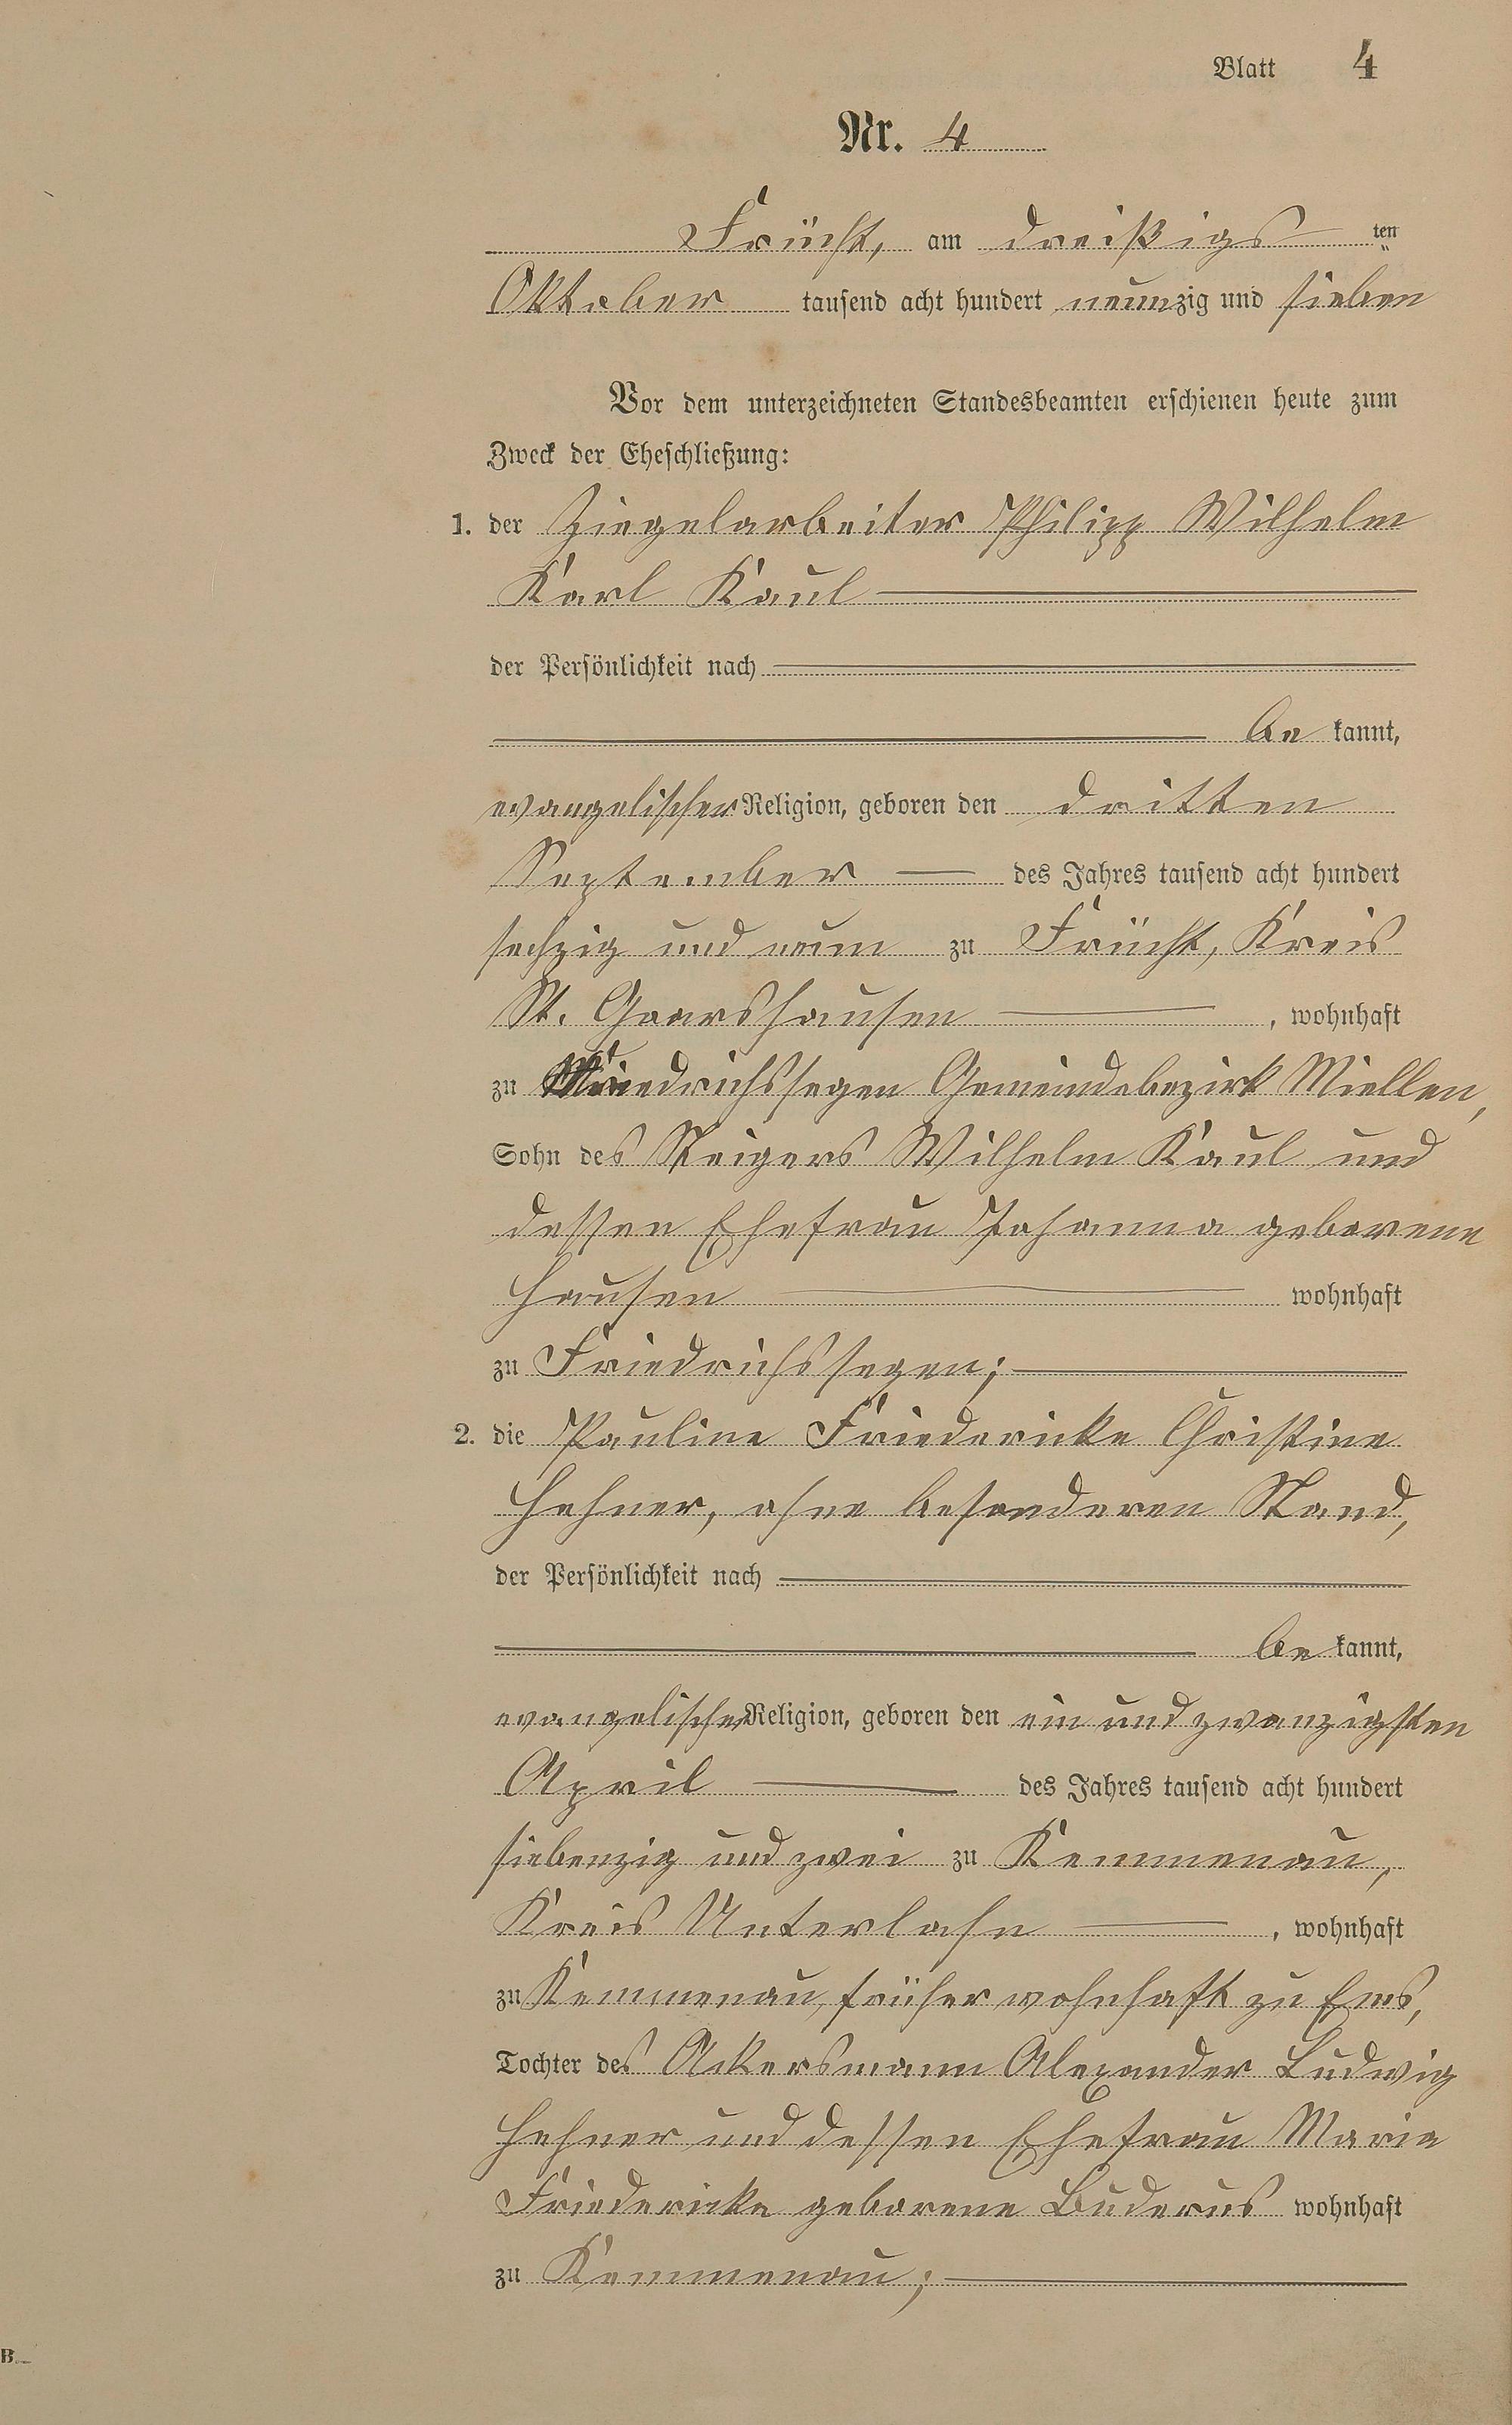 Blatt 4
Nr. 4
Frücht, am dreißigs ten
Oktober tausend acht hundert neunzig und sieben
Vor dem unterzeichneten Standesbeamten erschienen heute zum
Zweck der Eheschließung:
1. der Ziegelarbeiter Philipp Wilhelm
Karl Kaul
der Persönlichkeit nach
be kannt,
evangelischer Religion, geboren den dritten
September des Jahres tausend acht hundert
sechzig und neun zu Frücht, Kreis
St. Goarshausen , wohnhaft
zu Friedrichssegen Gemeindebezirk Miellen,
Sohn des Steigers Wilhelm Kaul und
dessen Ehefrau Johanna geborene
Hausen wohnhaft
zu Friedrichssegen;
2. die Pauline Friedericke Christine
Hehner, ohne besonderen Stand,
der Persönlichkeit nach
be kannt,
evangelischer Religion, geboren den ein und zwanzigsten
April des Jahres tausend acht hundert
siebenzig und zwei zu Kemmenau,
Kreis Unterlahn , wohnhaft
zu Kemmenau, früher wohnhaft zu Ems,
Tochter des Ackersmann Alexander Ludwig
Hehner und dessen Ehefrau Marie
Friedericke geborene Buderus wohnhaft
zu Kemmenau;
B.